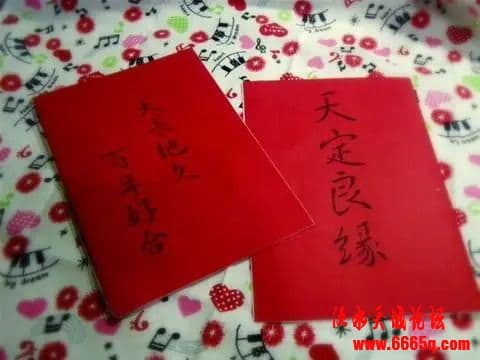 天长地久
百年好合
天定良缘
www.6665q.com
my dream